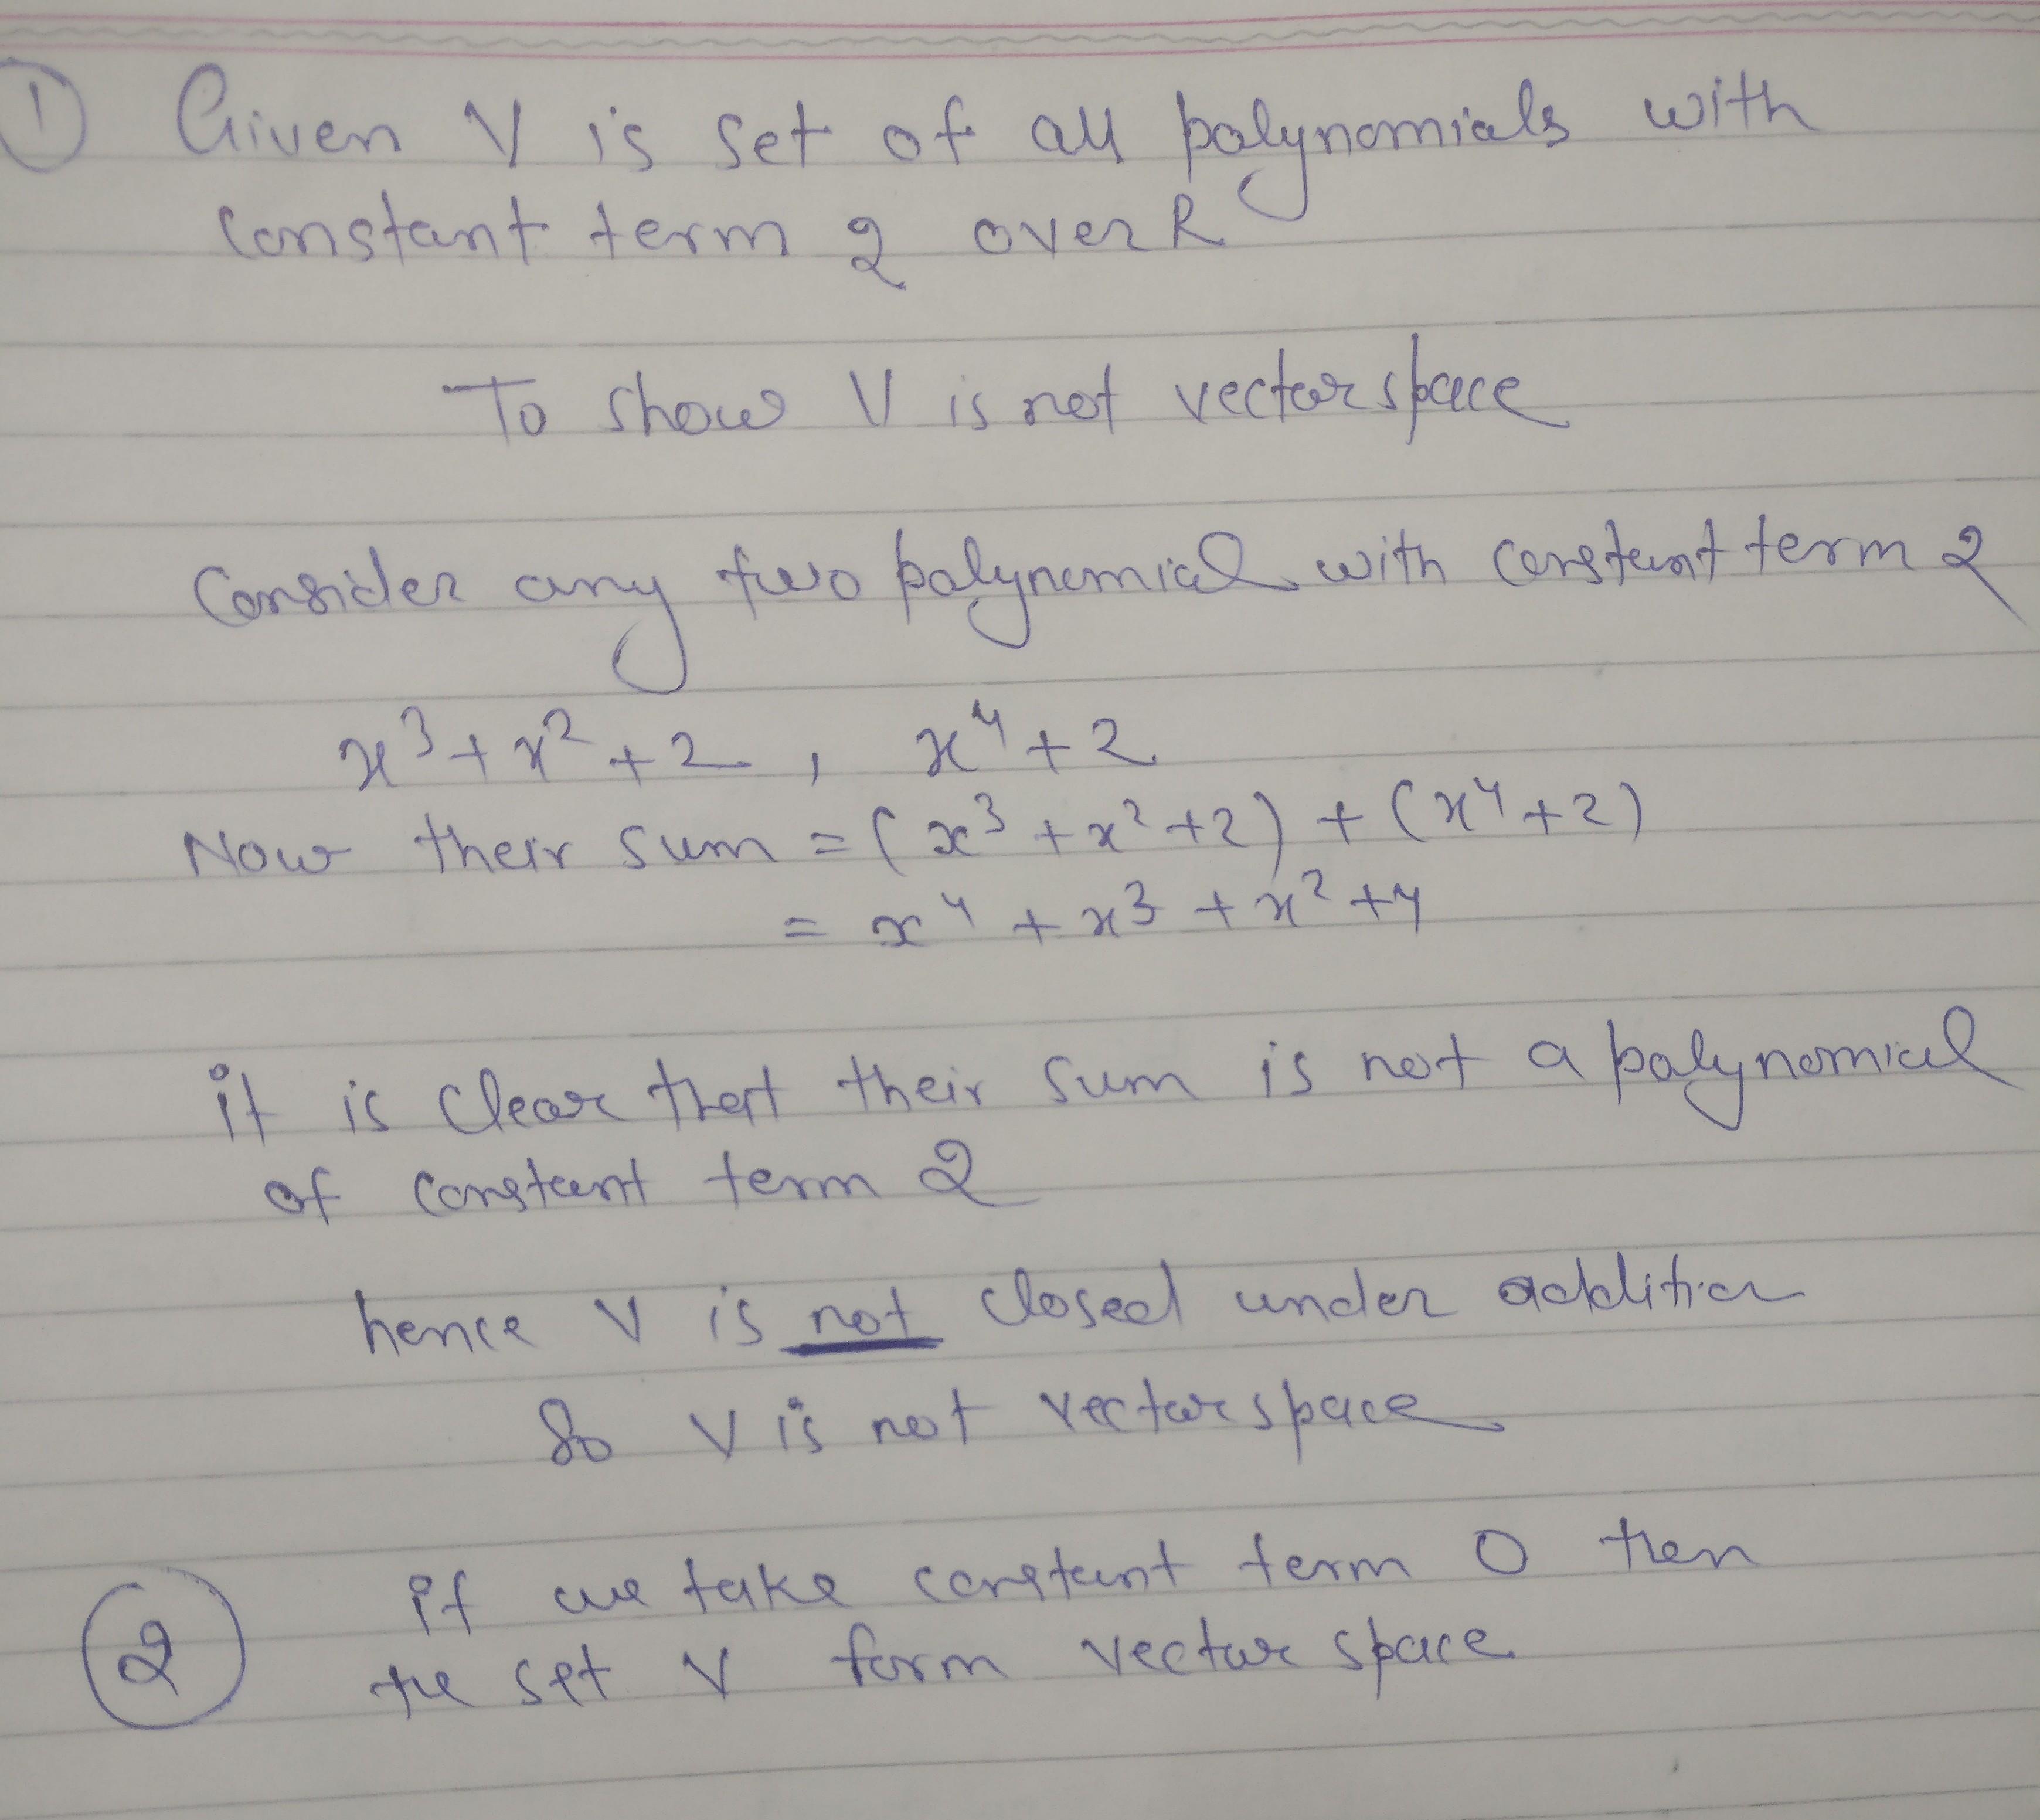 ① Given V is set of all polynomials with
constant term 2 over R
To show V is not vector space
Consider any two polynomial with constant term 2
x³ + x² + 2 , x⁴ + 2
Now their sum = (x³ + x² + 2) + (x⁴ + 2)
= x⁴ + x³ + x² + 4
it is clear that their sum is not a polynomial
of constant term 2
hence V is not closed under addition
So V is not vector space
② if we take constant term 0 then
the set V form vector space